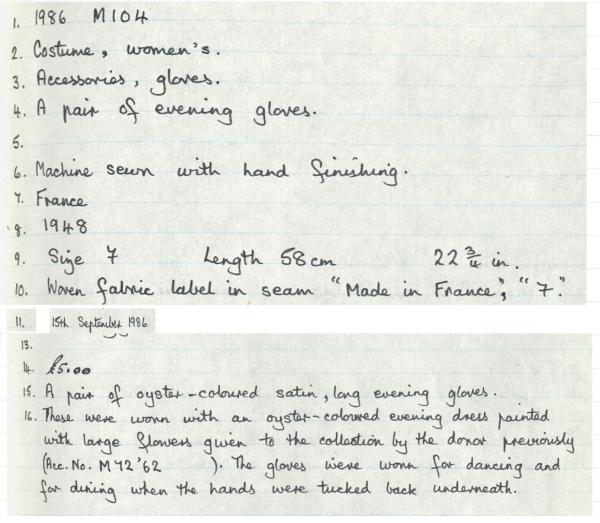 1. 1986 M104
2. Costume, women's.
3. Accessories, gloves.
4. A pair of evening gloves.
5.
6. Machine sewn with hand finishing.
7. France
8. 1948
9. Size 7 Length 58cm 22 3/4 in.
10. Woven fabric label in seam "Made in France", "7."
11. 15th September 1986
13.
14. £5.00
15. A pair of oyster-coloured satin, long evening gloves.
16. These were worn with an oyster-coloured evening dress painted
with large flowers given to the collection by the donor previously
(Acc. No. M72'62 ). The gloves were worn for dancing and
for dining when the hands were tucked back underneath.